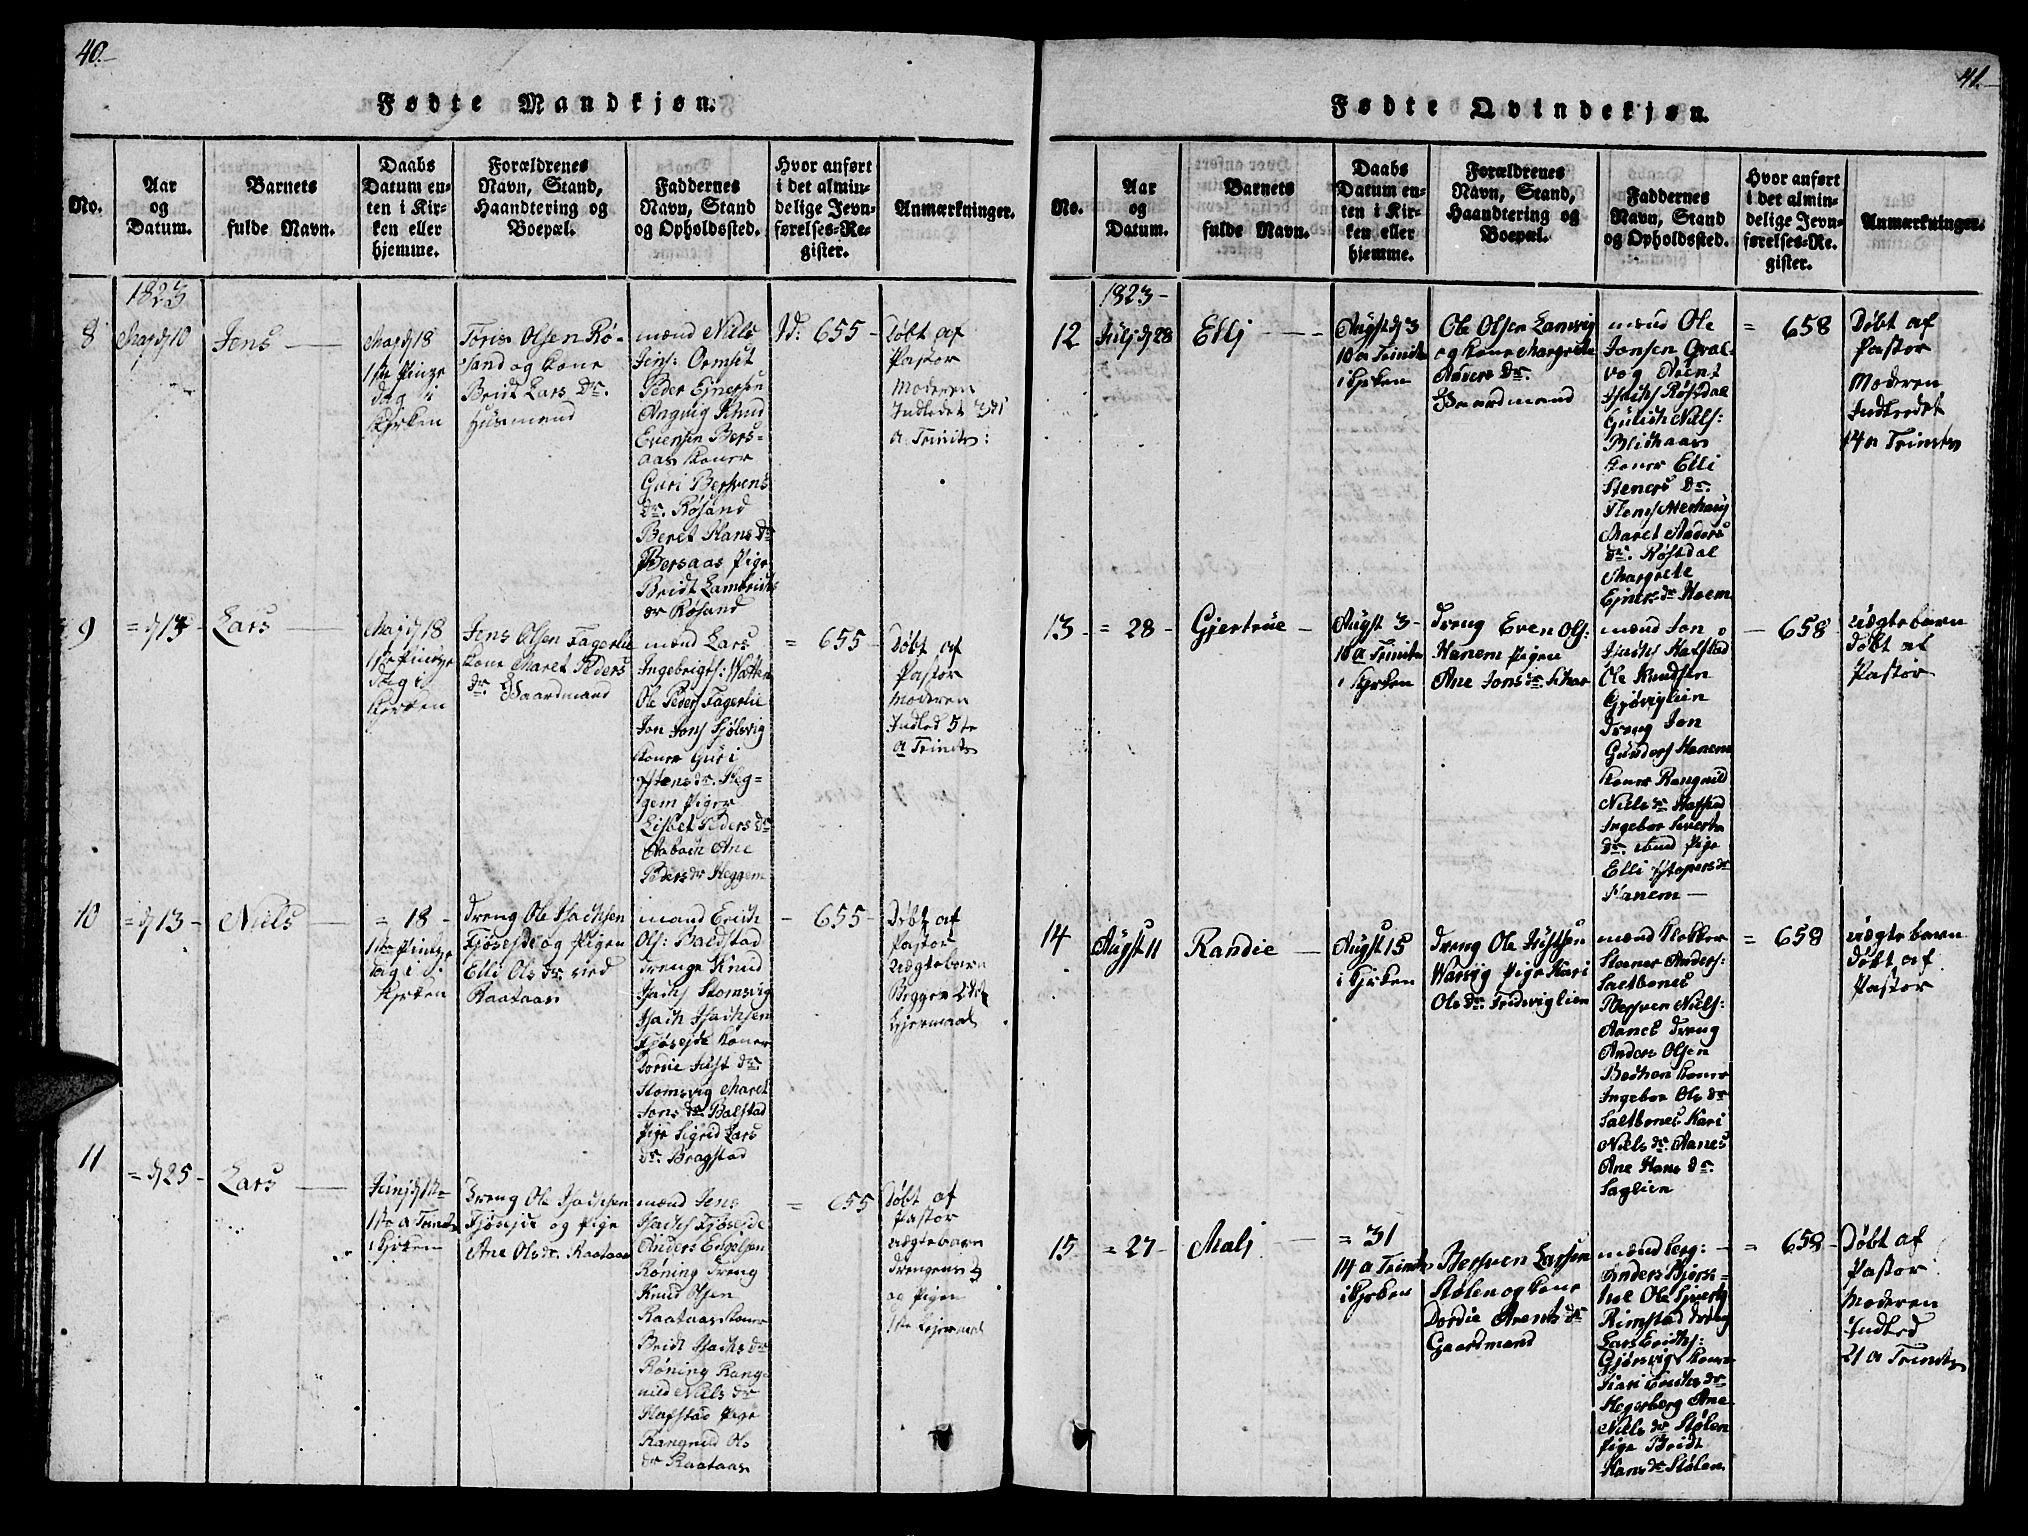 40.
Fødte Mandkjøn.
No.
Aar
og
Datum.
Barnets
fulde Navn.
Daabs
Datum en-
ten i Kir-
ken eller
hjemme.
Forældrenes
Navn, Stand,
Haandtering og
Boepæl.
Faddernes
Navn, Stand
og Opholdssted.
Hvor anført
i det almin-
delige Jevn-
førelses-Re-
gister.
Anmærkninger.
1823
8
Majd 10
Jens
Majd 18
1ste Pintze
dag i
Kjrken
Tores Olsen Rö-
sand og Kone
Bridt Lars Dr.
Huusmand
mænd Niels
Jens: Ormset
Peder Ejnersen
Angvig Knud
Evensen Bers-
aas Koner
Guri Bersvens
Dr. Rösand
Beret Hans Dr
Bersaas Pige
Bridt Lambrichts
dr Rösand
Id: 655
Döbt af
Pastor
Moderen
Indledet 3di
a Trinits:
9
= d 13
Lars
Majd 18
1ste Pintze
dag i
Kjrken
Jens Olsen Fagerlie
Kone Maret Peders
dr. Gaardmand
mænd Lars
Ingebrigts: Watten
Ole Peders Fagerlie
Jon Jons Sjölsvig
Koner Guri
Dr. Heg-
gem Piger
Lisbet Peders dr
Aaboch Ane
Peders dr Heggem
= 655
Döbt af
Pastor
Moderen
Indled 5te
a Trinits
10
= d 13
Niels
= 18
1ste Pintze
dag i
Kjrken
Dreng Ole Isachsen
Fjöseide og Pigen
Elli Ols dr ved
Raataas
mænd Erich
Ols: Baldstad
drenge Knud
Isachs Stomsvig
Isach Isachsen
Fjöseide Koner
Dordie Just dr.
Stomsvig Maret
Jons dr Balstad
Pige Sigrid Lars
dr. Bragstad
- 655
Döbt af
Pastor
uægtebarn
Begges 2det
Lejermaal
11
= d 25
Lars
Junj d 1ste
1ste a Trinits
i Kjrken
Dreng Ole Isachsen
Fjöseide og Pige
Ane Ols dr. Raataas
mænd Jens
Isachs Fjöseide
Anders Engelsen
Röning Dreng
Knud Olsen
Raataas Koner
Bridt Isachs dr
Röning Rang-
nild Niels dr
Hafstad Pige
Rangnild Ols
dr Raataas
= 655
Döbt af
Pastor
uægtebarn
drengens 3
og Pigen
1ste Lejermaal
41.
Fødte Qvindekjøn.
No.
Aar
og
Datum.
Barnets
fulde Navn.
Daabs
Datum en-
ten i Kir-
ken eller
hjemme.
Forældrenes
Navn, Stand,
Haandtering og
Boepæl.
Faddernes
Navn, Stand
og Opholdssted.
Hvor anført
i det almin-
delige Jevn-
førelses-Re-
gister.
Anmærkninger.
1823
12
Julj d 28
Ellj
Augst d 3
10 a Trinits
i Kjrken
Ole Olsen Lansvig
og Kone Margrete
Anders dr.
Gaardmand
mænd Ole
Jonsen Qval-
vog Arent
Isachs Rösdal
Gulich Niels:
Blichaas
Koner Elli
Steners dr.
Maret Anders
dr. Rösdal
Margrete
Ejners dr Hoem
= 658
Döbt af
Pastor
Moderen
Indledet
14 a Trinits
13
= 28
Gjertrue
Augst 3
10 a Trinits
i Kjrken
Dreng Even Ols:
Hanem Pigen
Ane Jons dr
mænd Jon
Isachs Hafstad
Ole Knudsen
Gjöviglien
dreng Jon
Gunders Hanem
Koner Rangnild
Niels dr Hafstad
Ingebor Siverts
dr. Pige
Elli dr
Hanem
- 658
uægtebarn
Döbt af
Pastor
14
Augst 11
Randie
Augst 15
i Kjrken
Dreng Ole Justsen
Wasvig Pige Kari
Ols dr
mænd Klokker
Stener Anders:
Saltbones
Bersven Niels:
Aanes Dreng
Anders Olsen
Bechen Koner
Ingebor Ols dr
Saltbones Kari
Niels dr. Aanes
Ane Hans dr.
Saglien
= 658
uægtebarn
Döbt af
Pastor
15
= 27
Malj
= 31
14 a Trinits
i Kjrken
Bersven Larsen
Stölen og Kone
Dordie Arents dr
Gaardmand
mænd berg:
Anders Björs-
Ole Siverts
Rimstad dreng
Lars Erichs:
Gjönvig Kone
Kari Erichs dr
Hegerberg Ane
Niels dr Stölen
Pige Bridt
Hans dr Stölen
= 658
Döbt af
Pastor
Moderen
Indled
21 a Trinits